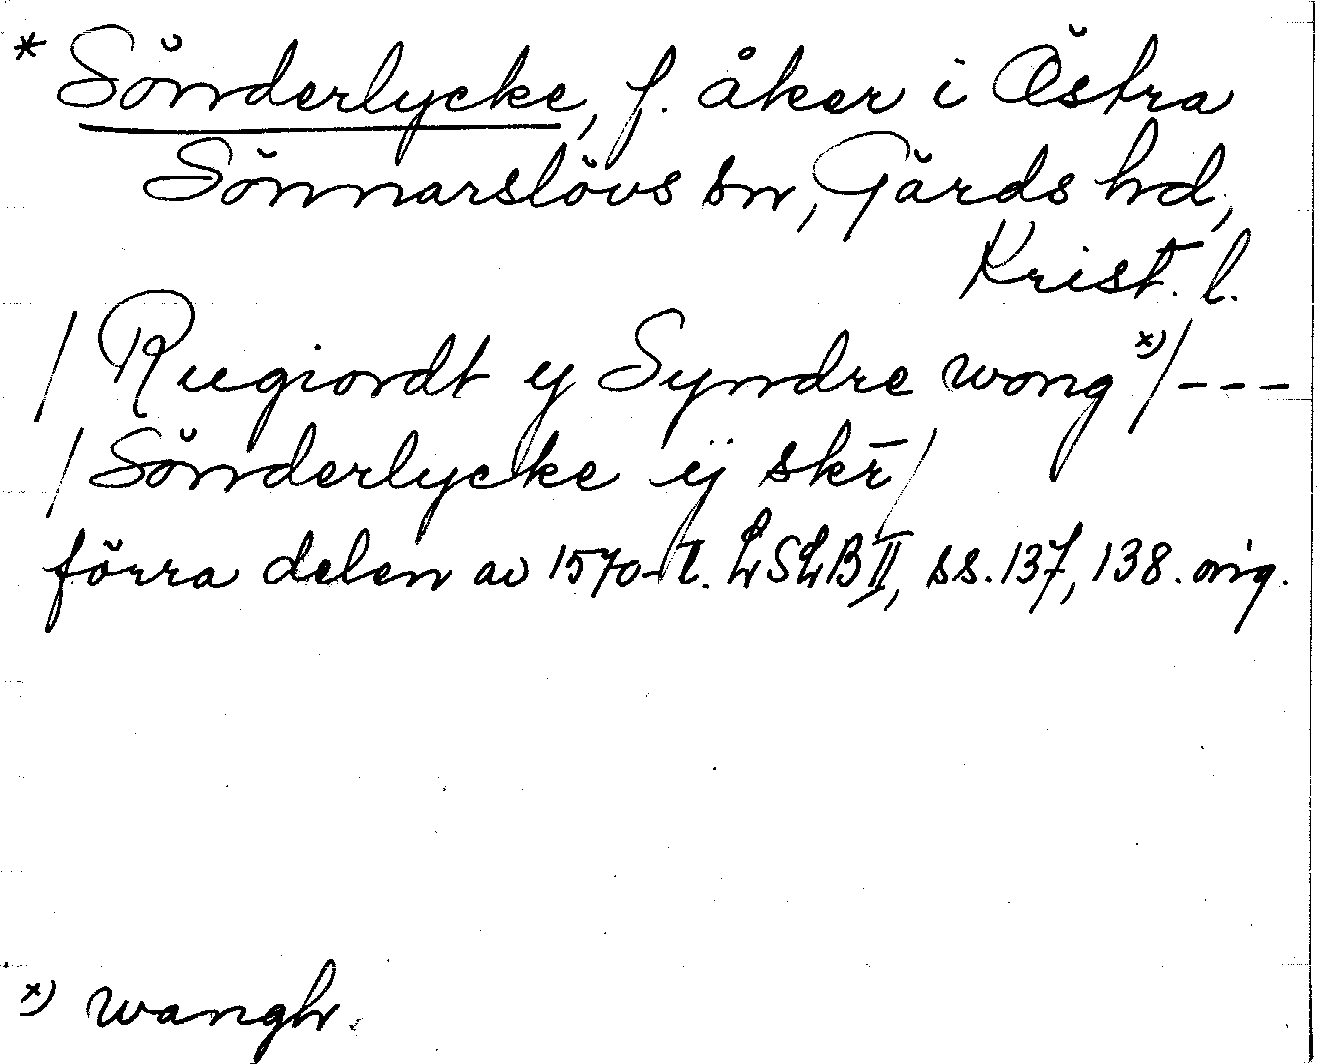 * Sönderlycke, f. åker i Östra
Sönnarslövs sn, Gärds hd,
Krist. l.
/ Rugiordt y Syndre wong x) / - - -
/ Sönderlycke ij skr̄ /
förra delen av 1570-t. LSLB II, ss. 137, 138. orig.
x) wangh.